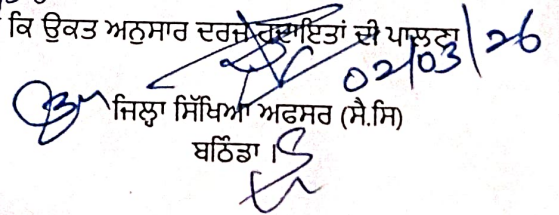 ਕਿ ਉਕਤ ਅਨੁਸਾਰ ਦਰਜ ਹਦਾਇਤਾਂ ਦੀ ਪਾਲਣਾ
02/03/26
ਜਿਲ੍ਹਾ ਸਿੱਖਿਆ ਅਫਸਰ (ਸੈ.ਸਿ)
ਬਠਿੰਡਾ ।